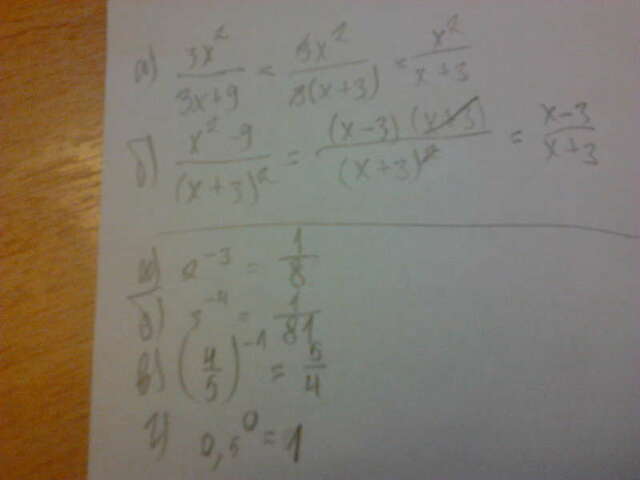 а) 3x²/3x+9 = 3x²/3(x+3) = x²/x+3
б) x²-9/(x+3)² = (x-3)(x+3)/(x+3)² = x-3/x+3
а) 2⁻³ = 1/8
б) 3⁻⁴ = 1/81
в) (4/5)⁻¹ = 5/4
г) 0,5⁰ = 1